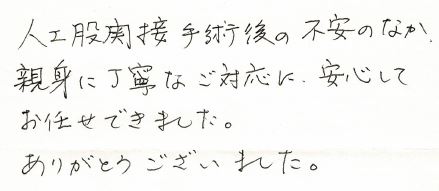 人工股関接手術後の不安のなか、
親身に丁寧なご対応に、安心して
お任せできました。
ありがとうございました。